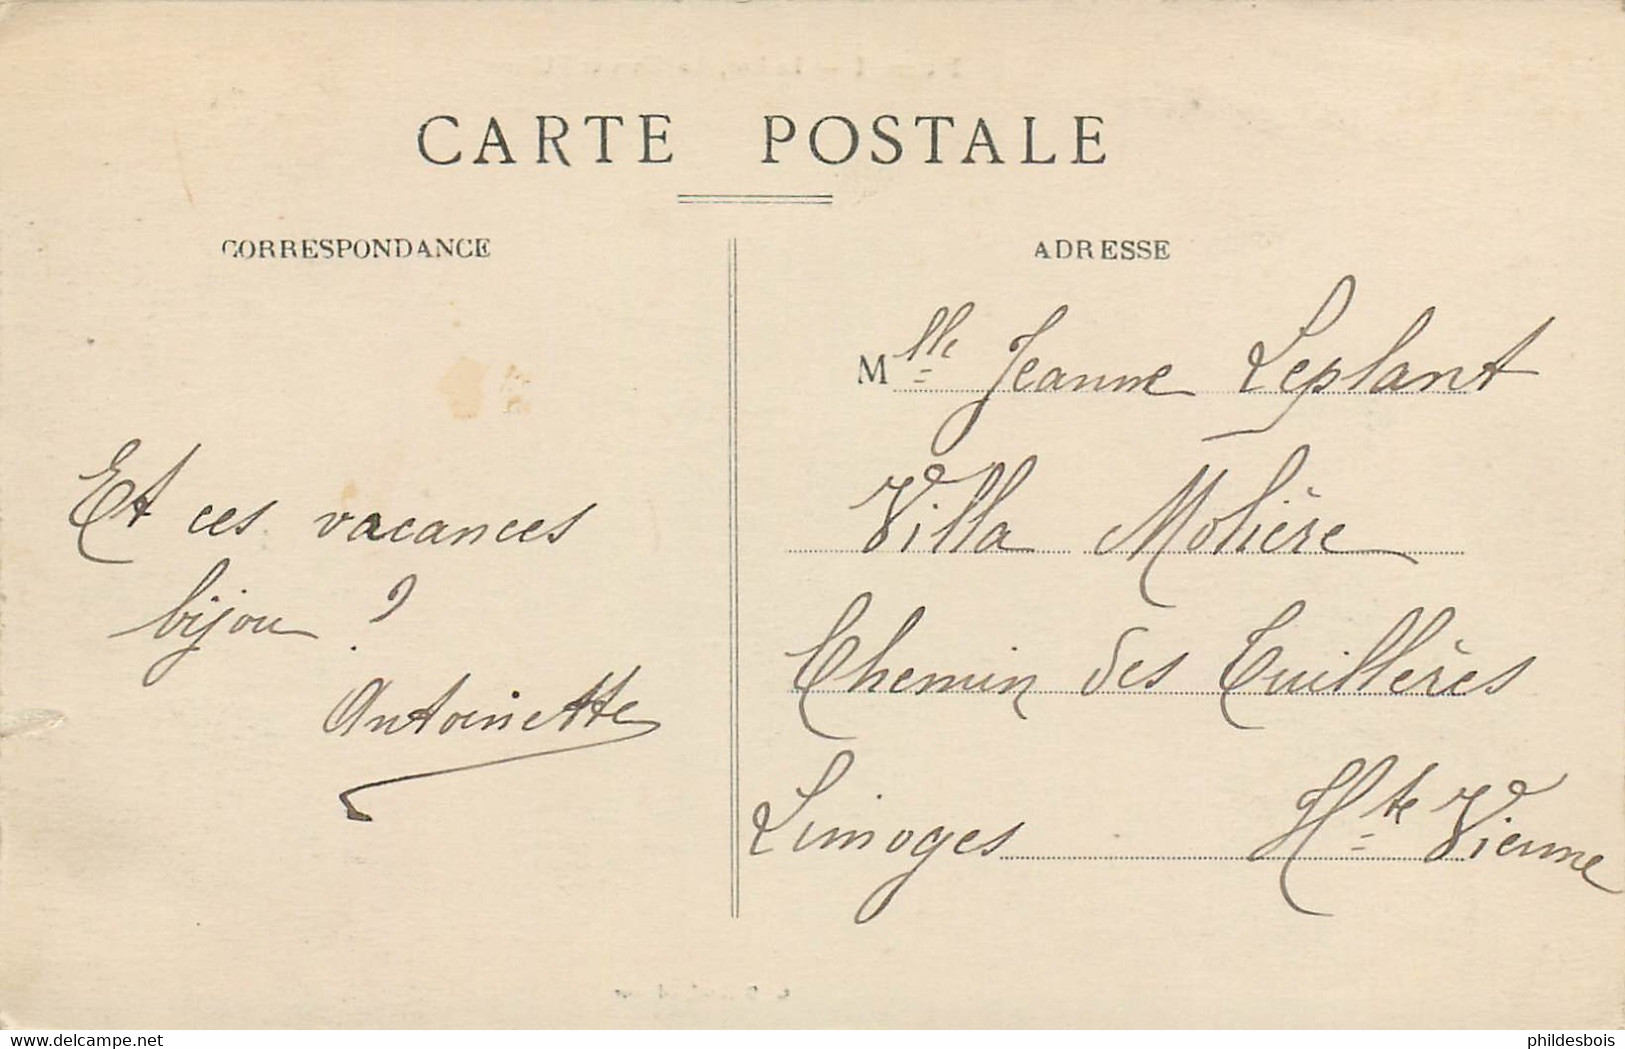 CARTE POSTALE
CORRESPONDANCE
ADRESSE
Et ces vacances
bijou ?
Antoinette
Mlle Jeanne Leplant
Villa Molière
Chemin des Tuillères
Limoges Hte Vienne
delcampe.net
phildesbois